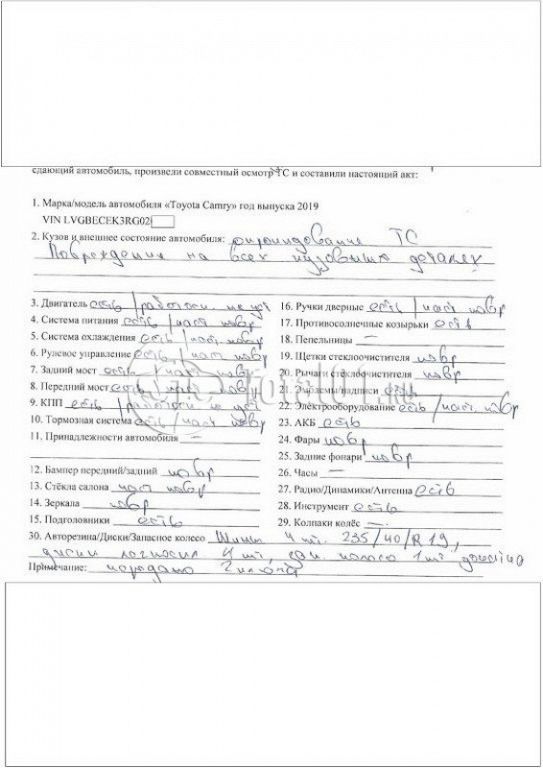 сдающий автомобиль, произвели совместный осмотр ТС и составили настоящий акт:
1. Марка/модель автомобиля «Toyota Camry» год выпуска 2019
VIN LVGBECEK3RG02
2. Кузов и внешнее состояние автомобиля: опрокидование ТС
Повреждения на всех кузовных деталях
3. Двигатель есть / работосп. не уст
4. Система питания есть / част повр
5. Система охлаждения есть / част. повр
6. Рулевое управление есть / част повр
7. Задний мост есть / част. повр
8. Передний мост есть / част. повр
9. КПП есть / работосп не уст
10. Тормозная система есть / част повр
11. Принадлежности автомобиля —
12. Бампер передний/задний повр
13. Стёкла салона част повр
14. Зеркала повр
15. Подголовники есть
16. Ручки дверные есть / част повр
17. Противосолнечные козырьки есть
18. Пепельницы —
19. Щетки стеклоочистителя повр
20. Рычаги стеклоочистителя повр
21. Эмблемы/надписи есть
22. Электрооборудование есть / част. повр
23. АКБ есть
24. Фары повр
25. Задние фонари повр
26. Часы —
27. Радио/Динамики/Антенна есть
28. Инструмент есть
29. Колпаки колёс —
30. Авторезина/Диски/Запасное колесо Шины 4 шт. 235/40/R19,
диски легкоспл 4 шт, зап колесо 1 шт
Примечание: передано 2 ключа